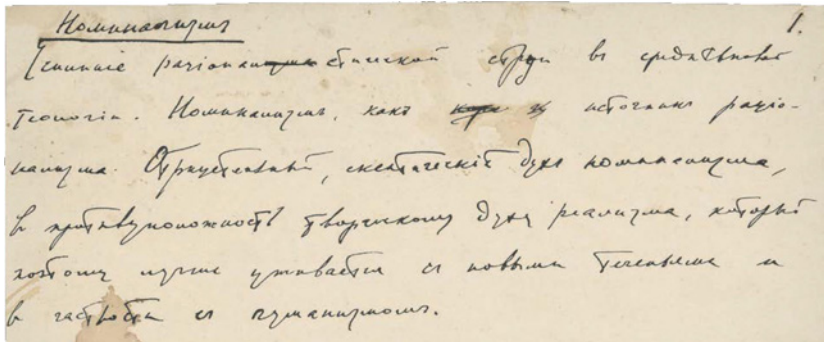 Номинализмъ
1.
раціоналистической струи въ средневѣковой
теологіи. Номинализмъ, какъ источникъ раціо-
нализма. Отрицательный, скептическій духъ номинализма,
въ противуположность творческому духу реализма, который
поэтому лучше уживается съ новыми теченьями и
в частности съ гуманизмомъ.